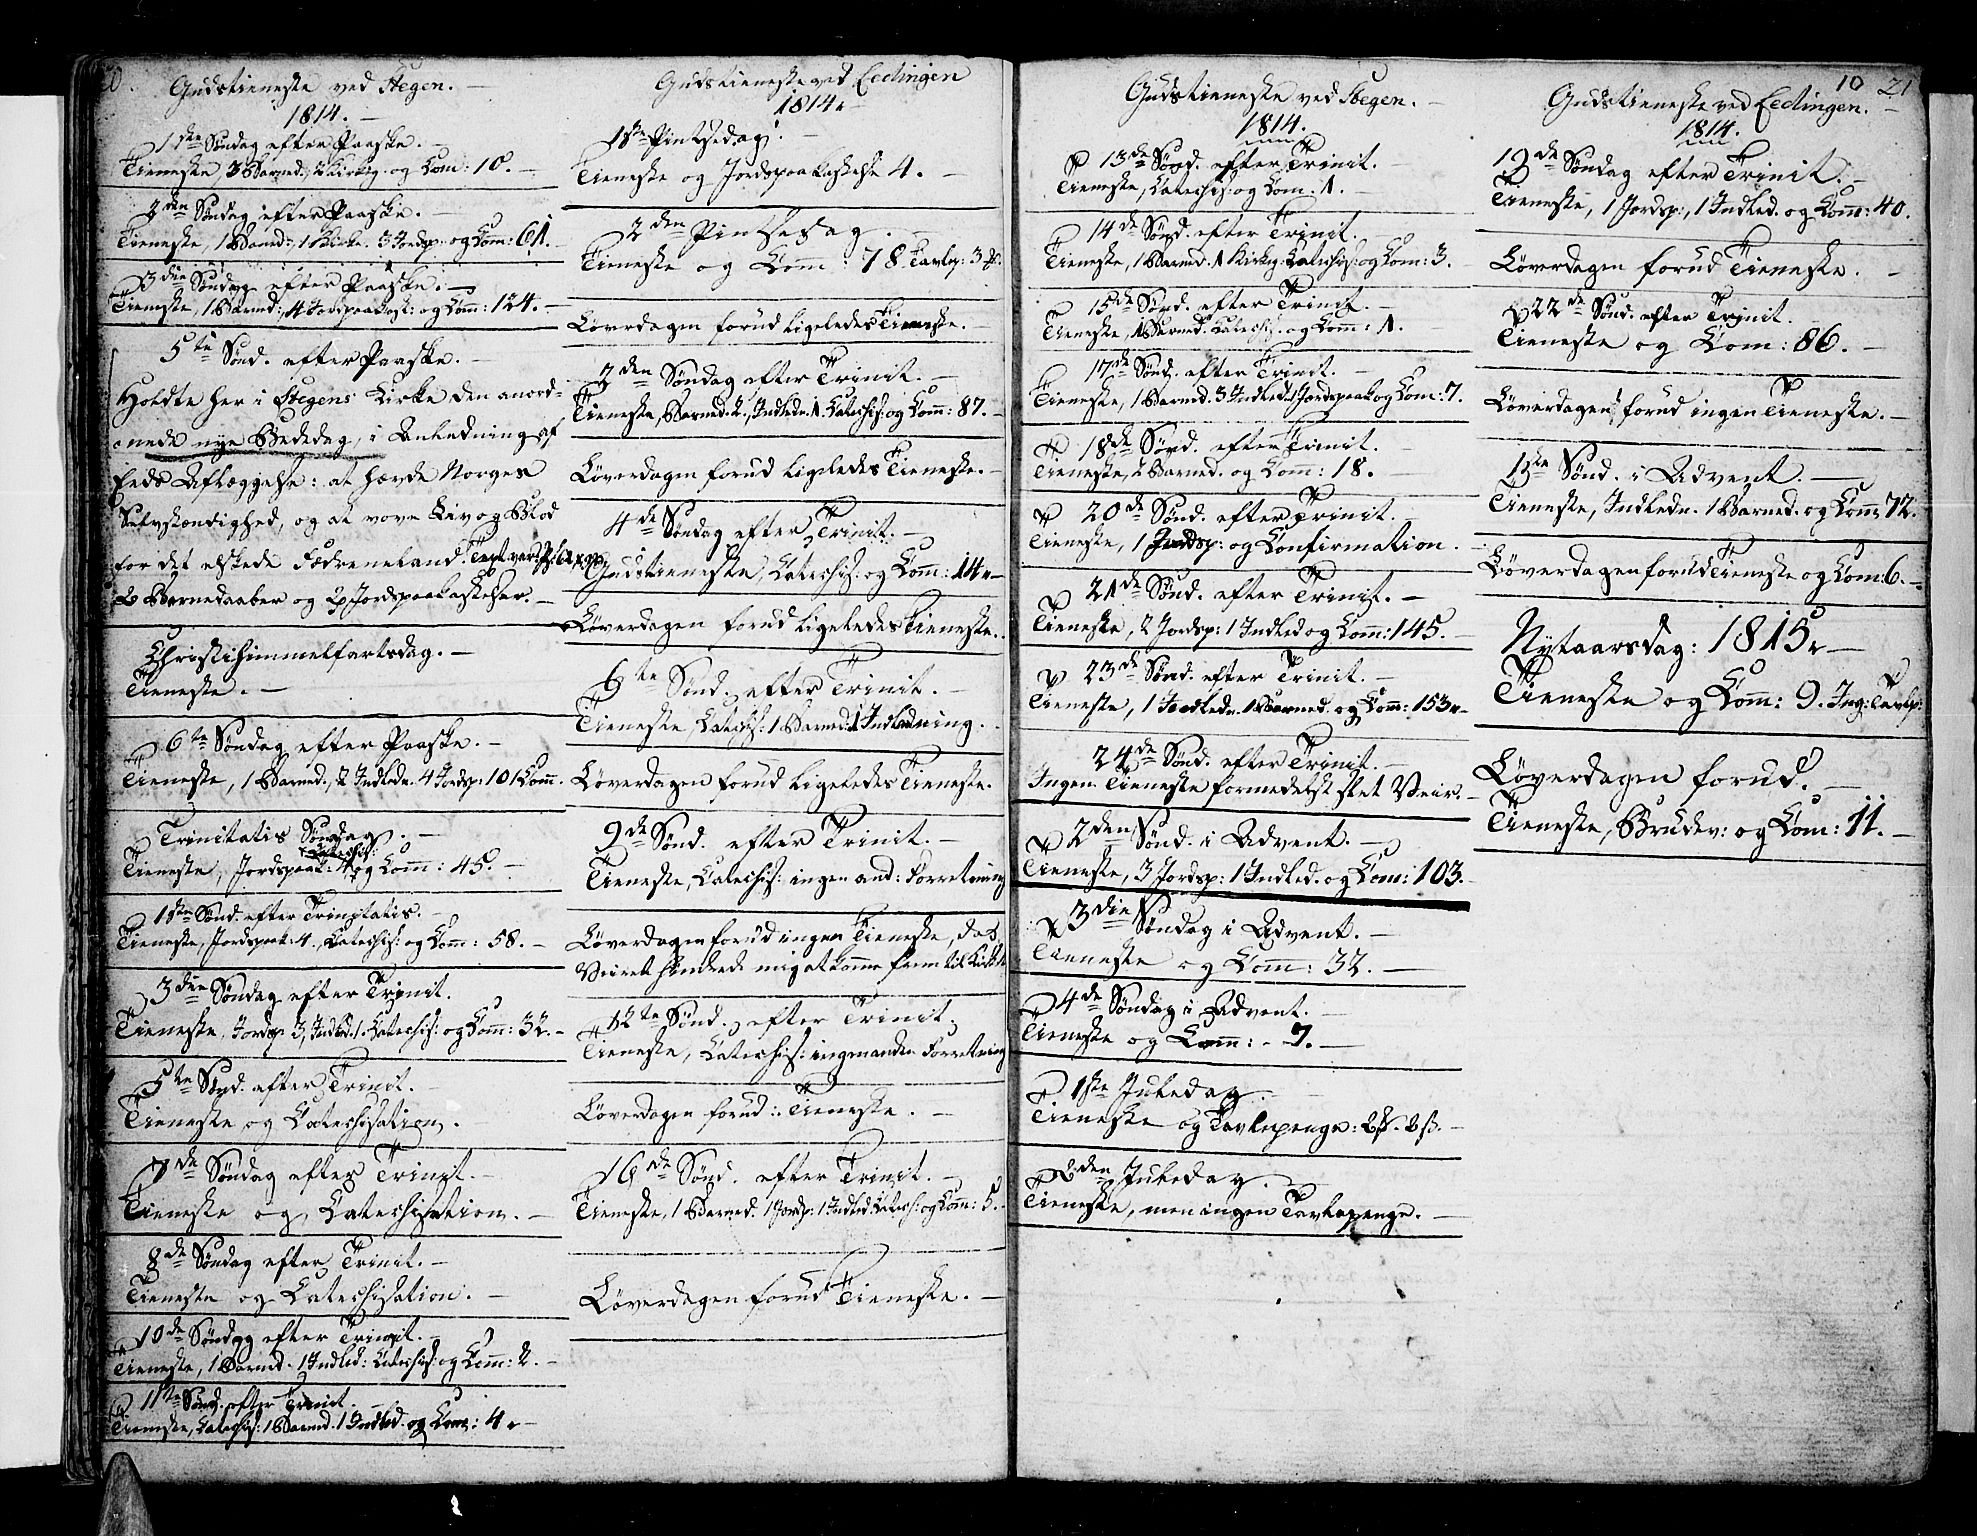 20.
Gudstieneste ved Stegen. –
1814. –
1ste Søndag efter Paaske. –
Tieneste, 3 Barned., 2 Kirkeg. og Com: 10. –
2den Søndag efter Paaske. –
Tieneste, 1 Barned:, 1 Kirke. 5 Jordsp: og Com: 61. –
3die Søndag efter Paaske. –
Tieneste, 1 Barned:, 4 Jordpaakast: og Com: 124. –
5te Sønd. efter Paaske. –
Holdte her i Stegens Kirke den anord-
nede nye Bededag, i Anledning af
Eeds Aflæggelse: at hævde Norges
Selvstændighed, og at vove Liv og Blod
for det elskede Fødreneland. Text var
2 Barnedaaber og 2 Jordspaakastelser. –
Christi himmelfartsdag. –
Tieneste. –
6te Søndag efter Paaske. –
Tieneste, 1 Barned., 2 Indledn. 4 Jordsp: 101 Com. –
Trinitatis Søndag. –
Catechis:
Tieneste, Jordspaak: 4 og Com: 45. –
1ste Sønd. efter Trinitatis. –
Tieneste, Jordspaak: 4., Catechis: og Com: 58. –
3die Søndag efter Trinit.
Tieneste, Jordsp 3, Indled. 1. Catechis: og Com: 32. –
5te Sønd. efter Trinit. –
Tieneste og Catechisation. –
7de Søndag efter Trinit. –
Tieneste og Catechisation. –
8de Søndag efter Trinit. –
Tieneste og Catechisation. –
10de Søndag efter Trinit. –
Tieneste, 1 Barned. 1 Indled: Catechis: og Com: 2. –
11te Sønd. efter Trinit. –
Tieneste, Catechis: 1 Barned. 1 Indled. og Com: 4. –
Gudstieneste ved Leedingen
1814. –
1ste Pintsedag. –
Tieneste og Jordspaakastelse 4. –
2den Pintsedag. –
Tieneste og Com: 78 Tavlep: 3
Løverdagen forud ligeledes Tieneste. –
2den Søndag efter Trinit. –
Tieneste, Barned. 2., Indledn. 1. Catechis: og Com: 87. –
Løverdagen forud ligeledes Tieneste. –
4de Søndag efter Trinit. –
Gudstieneste, Catechis: og Com: 14. –
Løverdagen forud ligeledes Tieneste. –
6te Sønd. efter Trinit. –
Tieneste, Catechis: 1 Barned: 1 Indledning. –
Løverdagen forud ligeledes Tieneste.
9de Sønd. efter Trinit. –
Tieneste, Catechis: ingen and: Forretning
Løverdagen forud ingen Tieneste, da
Veiret hindrede mig at komme frem til Kirken
12te Sønd. efter Trinit.
Tieneste, Catechis: ingen anden Forretning
Løverdagen forud: Tieneste. –
16de Sønd. efter Trinit. –
Tieneste, 1 Barned. 1 Jordsp: 1 Indled. Catech: og Com: 5. –
Løverdagen forud Tieneste. –
Gudstieneste ved Stegen. –
1814.
13de Sønd. efter Trinit. –
Tieneste, Catechis: og Com. 1. –
14de Sønd. efter Trinit. –
Tieneste, 1 Barned. 1 Kirkeg: Catechis: og Com: 3. –
15de Sønd. efter Trinit. –
Tieneste, 1 Barned. Catechis. og Com: 1. –
17de Sønd. efter Trinit. –
Tieneste, 1 Barned. 3 Indled. 1 Jordspaak og Com: 7.
18de Sønd. efter Trinit. –
Tieneste, 2 Barned. og Com: 18. –
20de Sønd. efter Trinit. –
Tieneste, 1 Jordsp: og Confirmation. –
21de Sønd. efter Trinit. –
Tieneste, 2 Jordsp: 1 Indled og Com: 145. –
23de Sønd. efter Trinit. –
Tieneste, 1 Indledn. 1 Barned. og Com: 153. –
24de Sønd. efter Trinit. –
Ingen Tieneste formedelst slet Veir. –
2den Sønd. i Advent. –
Tieneste, 3 Jordsp: 1 Indled. og Com: 103. –
3die Søndag i Advent. –
Tieneste og Com: 32. –
4de Søndag i Advent. –
Tieneste og Com: – 7. –
1ste Juledag. –
Tieneste og Tavlepenge:
2den Juledag. –
Tieneste, men ingen Tavlepenge. –
10 21
Gudstieneste ved Leedingen. –
1814.
19de Søndag efter Trinit. –
Tieneste, 1 Jordsp:, 1 Indled. og Com: 40.
Løverdagen forud Tieneste. –
22de Sønd. efter Trinit. –
Tieneste og Com: 86. –
Løverdagen forud ingen Tieneste. –
1ste Sønd. i Advent. –
Tieneste, Indledn. 1 Barned. og Com: 72.
Løverdagen forud Tieneste og Com: 6. –
Nytaarsdag: 1815. –
Tieneste og Com: 9. Ing: Tavlep:
Løverdagen forud. –
Tieneste, Brudev: og Com: 11. –